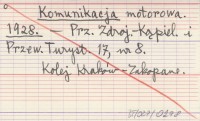 Komunikacja motorowa.
1928. — Prz. Zdroj.-Kąpiel. i
Przew. Turyst. 17, nr 8.
Kolej Kraków-Zakopane.